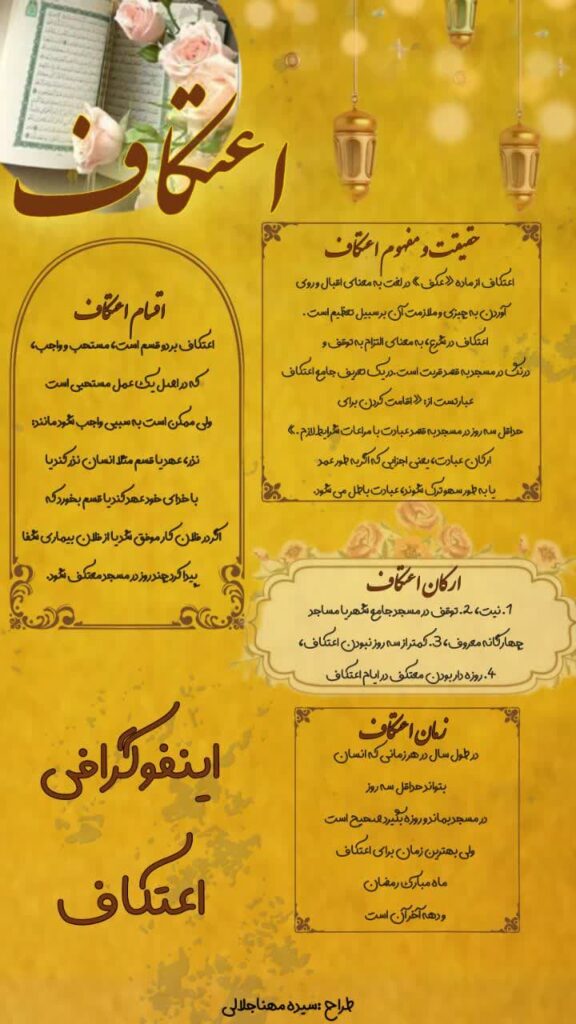 اعتکاف
حقیقت و مفهوم اعتکاف
اعتکاف از ماده «عکف» در لغت به معنای اقبال و روی
آوردن به چیزی و ملازمت آن بر سبیل تعظیم است.
اعتکاف در شرع، به معنای التزام به توقف و
درنگ در مسجد به قصد قربت است. در یک تعریف جامع اعتکاف
عبارتست از: «اقامت کردن برای
حداقل سه روز در مسجد به قصد عبادت با مراعات شرایط لازم.»
ارکان عبادت، یعنی اجزایی که اگر به طور عمد
یا به طور سهو ترک شوند، عبادت باطل می شود.
اقسام اعتکاف
اعتکاف بر دو قسم است، مستحب و واجب،
که در اصل یک عمل مستحبی است
ولی ممکن است به سببی واجب شود مانند:
نذر، عهد یا قسم مثلا انسان نذر کند یا
با خدای خود عهد کند یا قسم بخورد که
اگر در فلان کار موفق شد یا از فلان بیماری شفا
پیدا کرد چند روز در مسجد معتکف شود.
ارکان اعتکاف
1. نیت، 2. توقف در مسجد جامع شهر یا مساجد
چهارگانه معروف، 3. کمتر از سه روز نبودن اعتکاف،
4. روزه دار بودن معتکف در ایام اعتکاف
زمان اعتکاف
در طول سال در هر زمانی که انسان
بتواند حداقل سه روز
در مسجد بماند و روزه بگیرد صحیح است
ولی بهترین زمان برای اعتکاف
ماه مبارک رمضان
و دهه آخر آن است
اینفوگرافی
اعتکاف
طراح :سیده مهنا جلالی